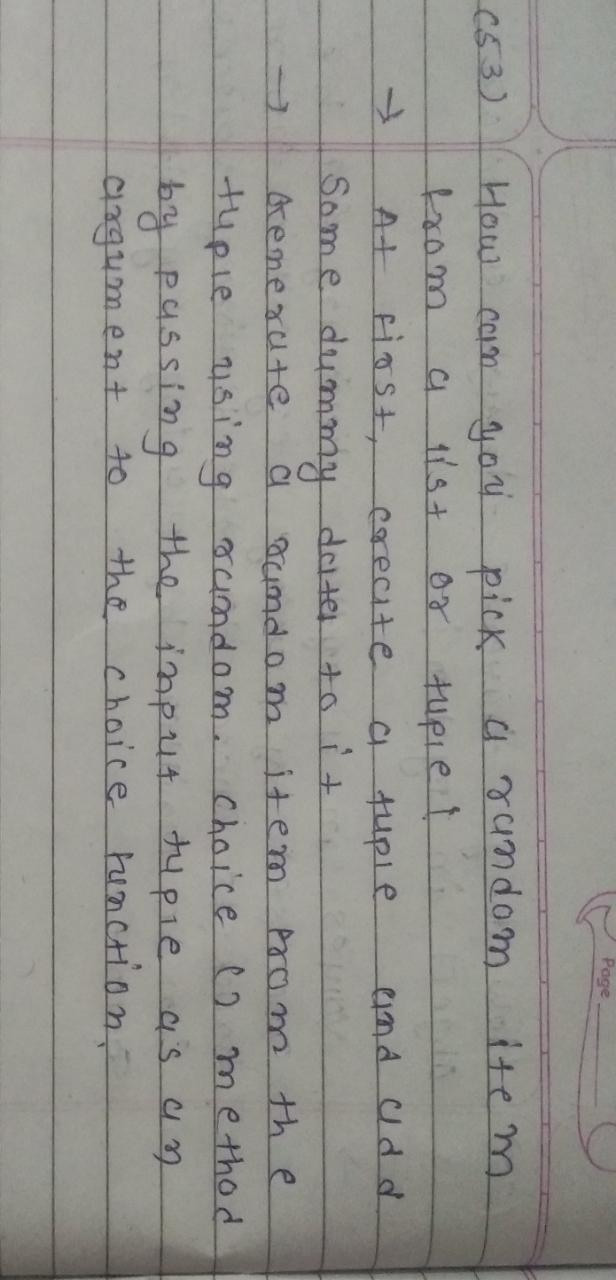 Page
(53) How can you pick a random item
from a list or tuple?
→ At first, create a tuple and add
Some dummy data to it
→ Generate a random item from the
tuple using random. choice () method
by passing the input tuple as an
argument to the choice function.